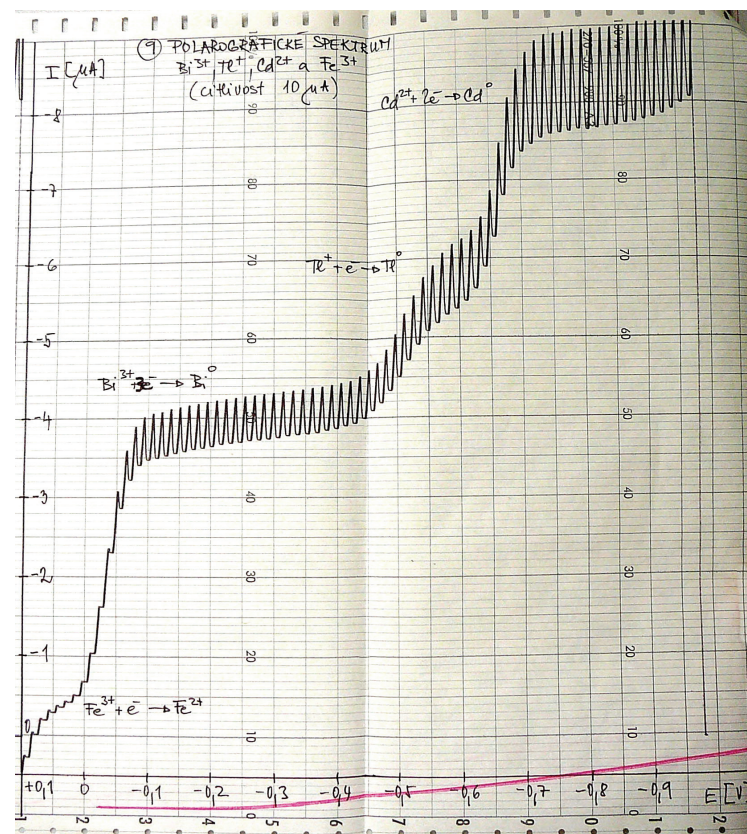 ⑨ POLAROGRAFICKÉ SPEKTRUM
I [μA]
Bi³⁺, Tl⁺, Cd²⁺ a Fe³⁺
(citlivost 10 μA)
Cd²⁺ + 2e⁻ → Cd⁰
Tl⁺ + e⁻ → Tl⁰
Bi³⁺ + 3e⁻ → Bi⁰
Fe³⁺ + e⁻ → Fe²⁺
-8
-7
-6
-5
-4
-3
-2
-1
0
90
80
70
60
50
40
30
20
10
0
90
80
70
60
50
40
30
20
10
0
+0,1 0 -0,1 -0,2 -0,3 -0,4 -0,5 -0,6 -0,7 -0,8 -0,9 E [V]
1 2 3 4 5 6 7 8 9 0 1 2